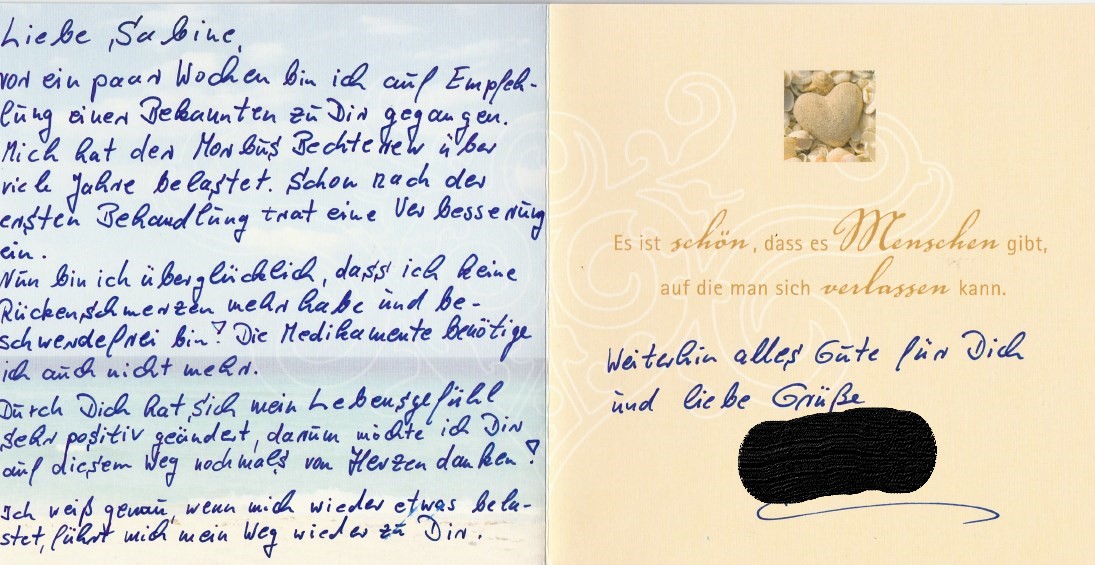 Liebe Sabine,
vor ein paar Wochen bin ich auf Empfeh-
lung einer Bekannten zu Dir gegangen.
Mich hat der Morbus Bechterew über
viele Jahre belastet. Schon nach der
ersten Behandlung trat eine Verbesserung
ein.
Nun bin ich überglücklich, dass ich keine
Rückenschmerzen mehr habe und be-
schwerdefrei bin! Die Medikamente benötige
ich auch nicht mehr.
Durch Dich hat sich mein Lebensgefühl
sehr positiv geändert, darum möchte ich Dir
auf diesem Weg nochmals von Herzen danken!
Ich weiß genau, wenn mich wieder etwas bela-
stet, führt mich mein Weg wieder zu Dir.
Es ist schön, dass es Menschen gibt,
auf die man sich verlassen kann.
Weiterhin alles Gute für Dich
und liebe Grüße